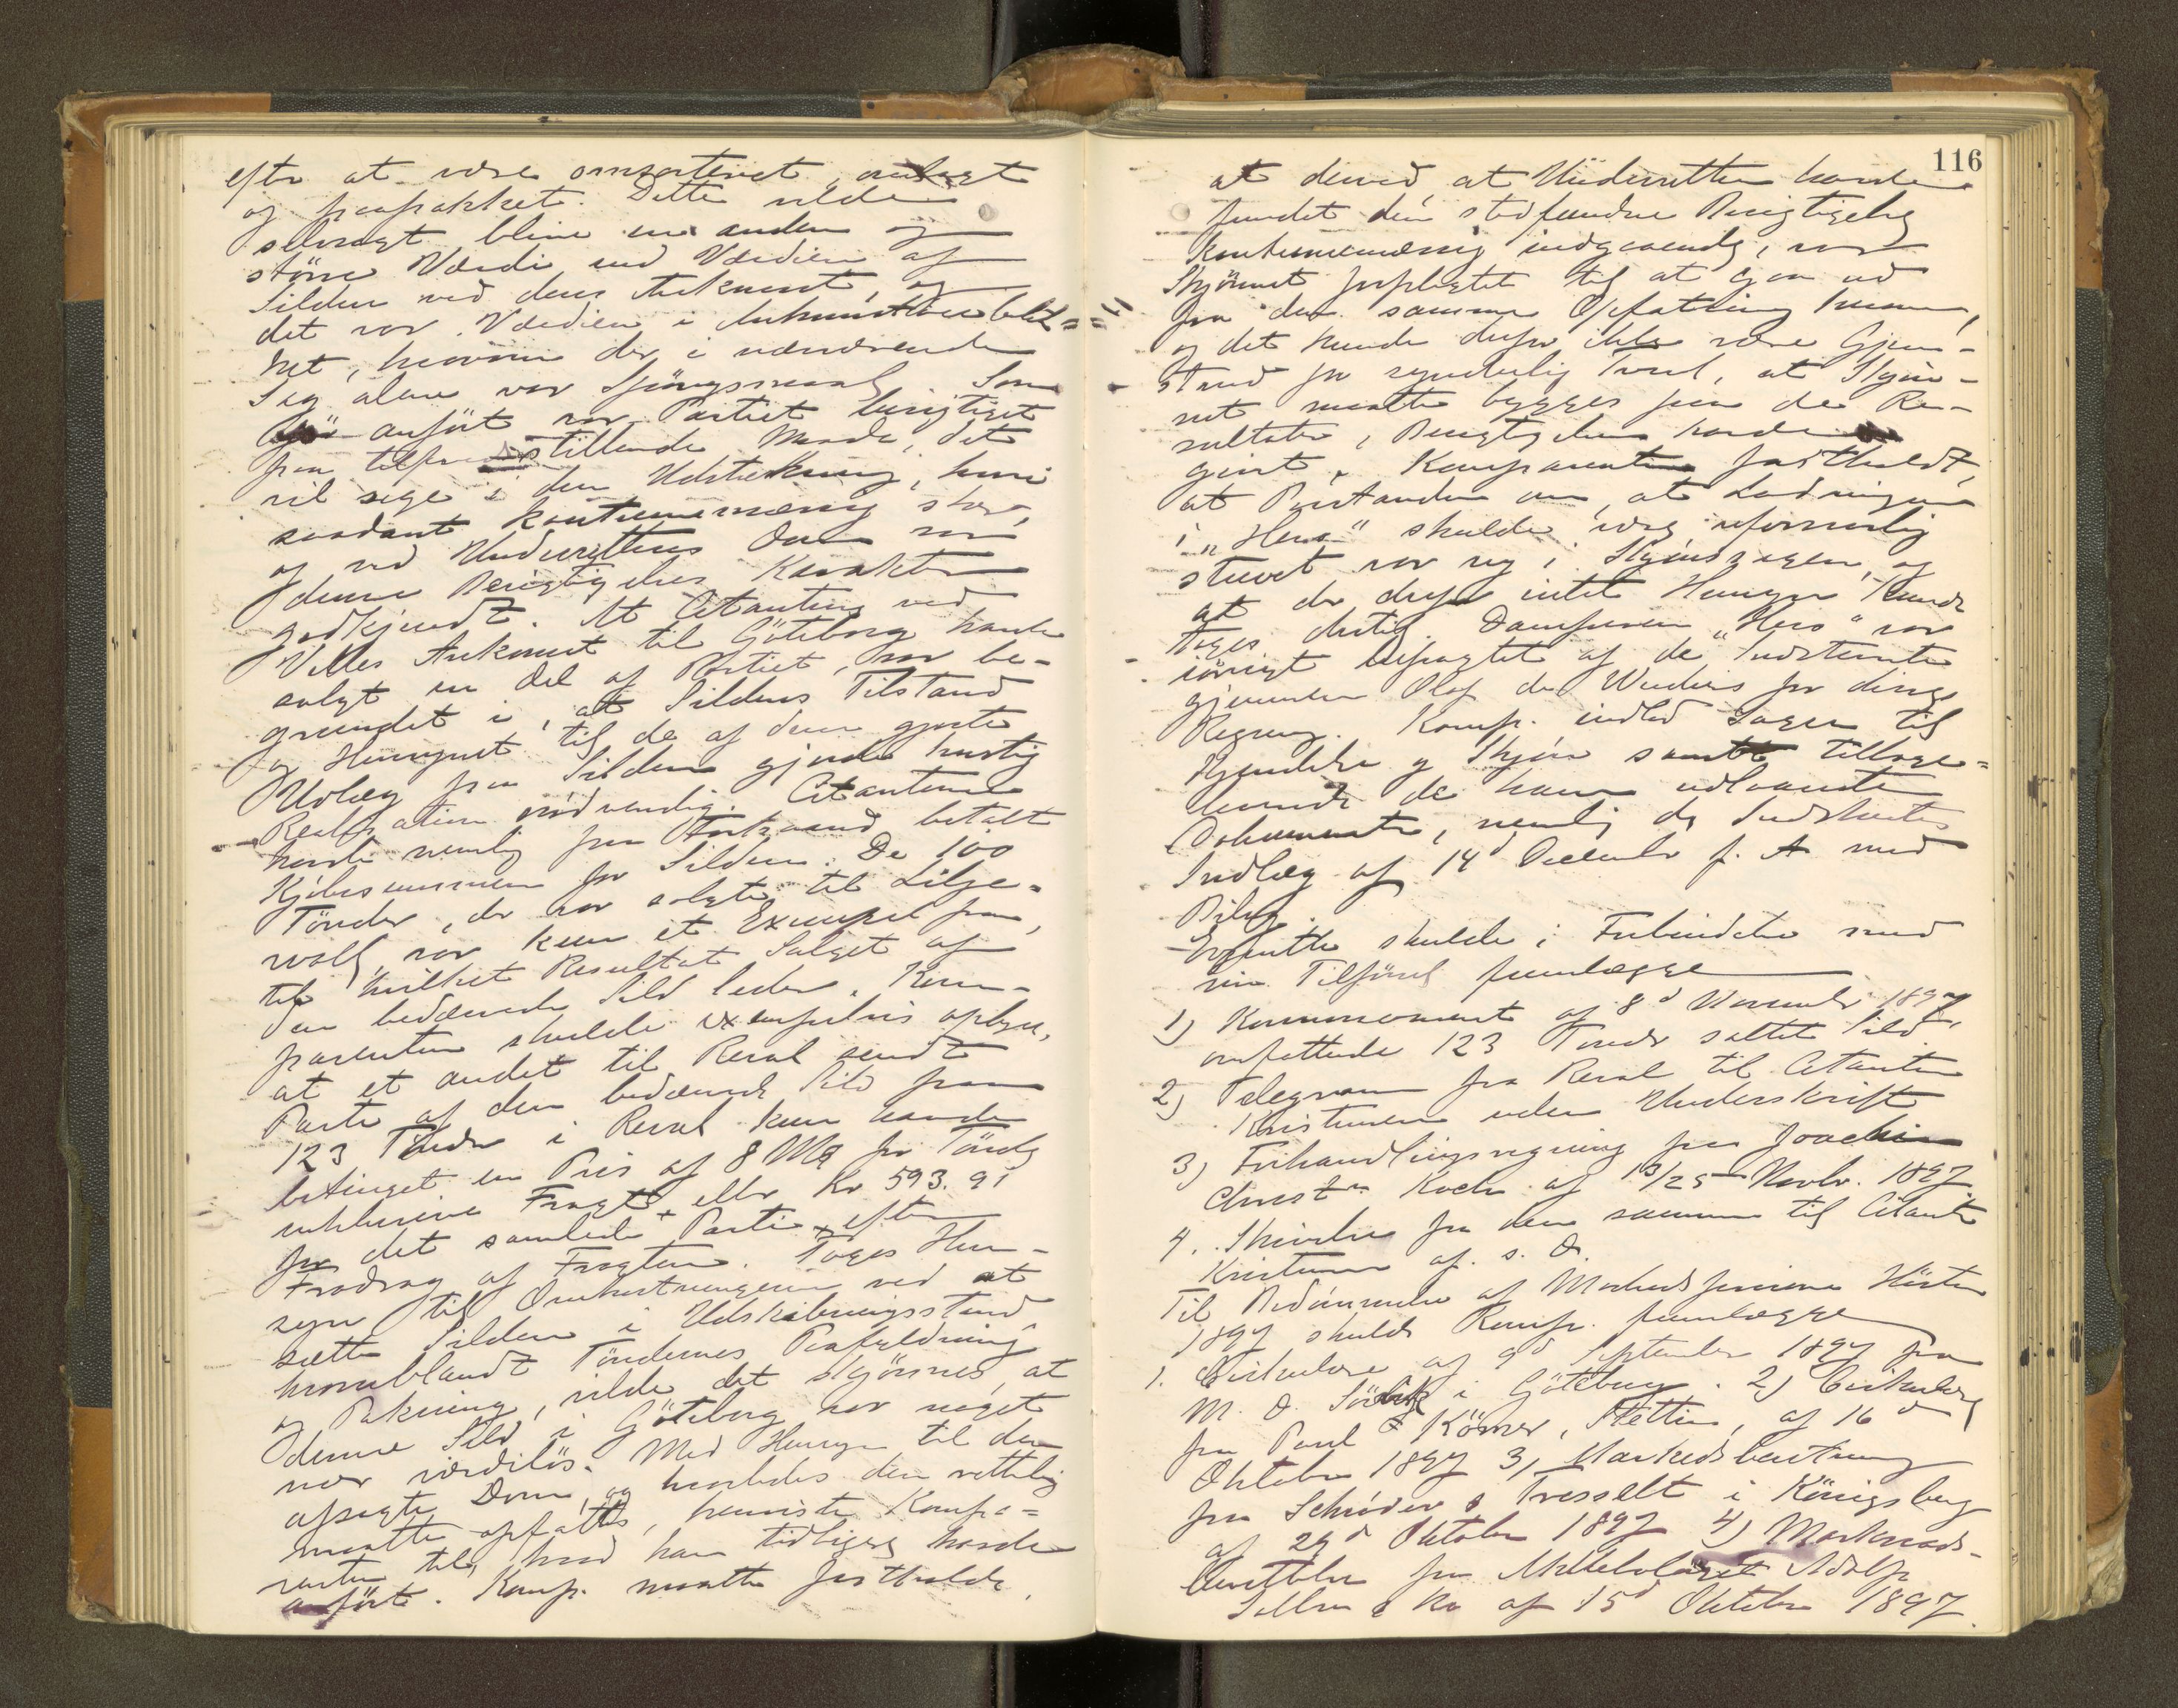 efter at være omsorteret, omlagt
og paapakket. Dette vilde
selvsagt blive en anden og
større Værdi end Værdien af
Silden ved dens Ankomst, og
det var Værdien i Ankomstöieblik=
ket, hvorom der i nærværende
Sag alene var Spörgsmaal. Som
anfört var Partiet besigtiget
paa tilfredsstillende Maade, det
vil sige i den Udstrækning, hvori
saadant koutumemæssig sker,
og ved Underrettens Dom var
denne Besigtigelses Karakter
godkjendt. At Citanterne ved
Villes Ankomst til Göteborg havde
solgt en del af Partiet, var be-
grundet i, at Sildens Tilstand
og Hensynet til de af dem gjorte
Udlæg paa Silden gjorde hurtig
Realisation nödvendig. Citanterne
havde nemlig paa Forhaand betalt
Kjöbesummen for Silden. De 100
Tönder, der var solgte til Lilje-
walch, var kun et Exempel paa,
til hvilket Resultat Salget af
den bedærvede Sild leder. Kom-
parenten skulde exempelvis oplyse,
at et andet til Reval sendt
Parti af den bedærvede Sild paa
123 Tönder i Reval kun havde
betinget en Pris af 8 Mk pr Tönde
inklusive Fragt, eller Kr 593.91
for det samlede Parti efter
Fradrag af Fragten. Tages Hen-
syn til Omkostningerne ved at
sætte Silden i Udskibningsstand,
hvoriblandt Töndernes Paafyldning
og Pakning, vilde det skjönnes, at
denne Sild i Göteborg var noget
nær værdilös. Med Hensyn til den
afsagte Dom, og hvorledes den rettelig
maatte opfattes, henviste Kompa=
renten til, hvad han tidligere havde
anfört. Komp. maatte fastholde,
116
at derved at Underretten havde
fundet den stedfundne Besigtigelse
koutumemæssig indgaaende, var
Skjönnet forpligtet til at gaa ud
fra den samme Opfatning herom,
og det kunde derfor ikke være Gjen-
stand for synderlig Tvivl, at Skjön-
net maatte bygges paa de Re-
sultater, Besigtigelsen havde
givet. Komparenten fastholdt,
at Paastanden om, at Ladningen
i "Hero" skulde være uforsvarlig
stuvet var ny i Skjönssagen, og
at der derfor intet Hensyn kunde
tages dertil. Damperen "Hero" var
iövrigt befragtet af de Indstevnte
gjennem Olaf der Weduwes for deres
Regning. Komp. indlod Sagen til
Kjendelse og Skjön samt tilbage-
leverede de ham udlaante
Dokumenter, nemlig de Indstevntes
Indlæg af 14d December f. A. med
Bilag.
Egenæs skulde i Forbindelse med
sin Tilförsel fremlægge
1) Konnossement af 8d November 1897,
omfattende 123 Tönder saltet Sild.
2) Telegram fra Reval til Citanten
Kristensen uden Underskrift
3) Forhandlingsregning fra Joachim
Christn Koch af 13/25 Novbr. 1897
4. Skrivelse fra den samme til Citanten
Kristensen af s. D.
Til Bedömmelse af Markedspriserne Hösten
1897 skulde Komp. fremlægge
1. Cirkulære af 9d September 1897 fra
M. D. i Göteborg. 2) Cirkulære
fra Paul & Körner, Stettin, af 16d
Oktober 1897 3) Markedsberetning
fra Schröder & Tresselt i Königsberg
af 29d Oktober 1897 4) Marknads-
berättelse fra Aktiebolaget Adolf
& Ko af 15d Oktober 1897.